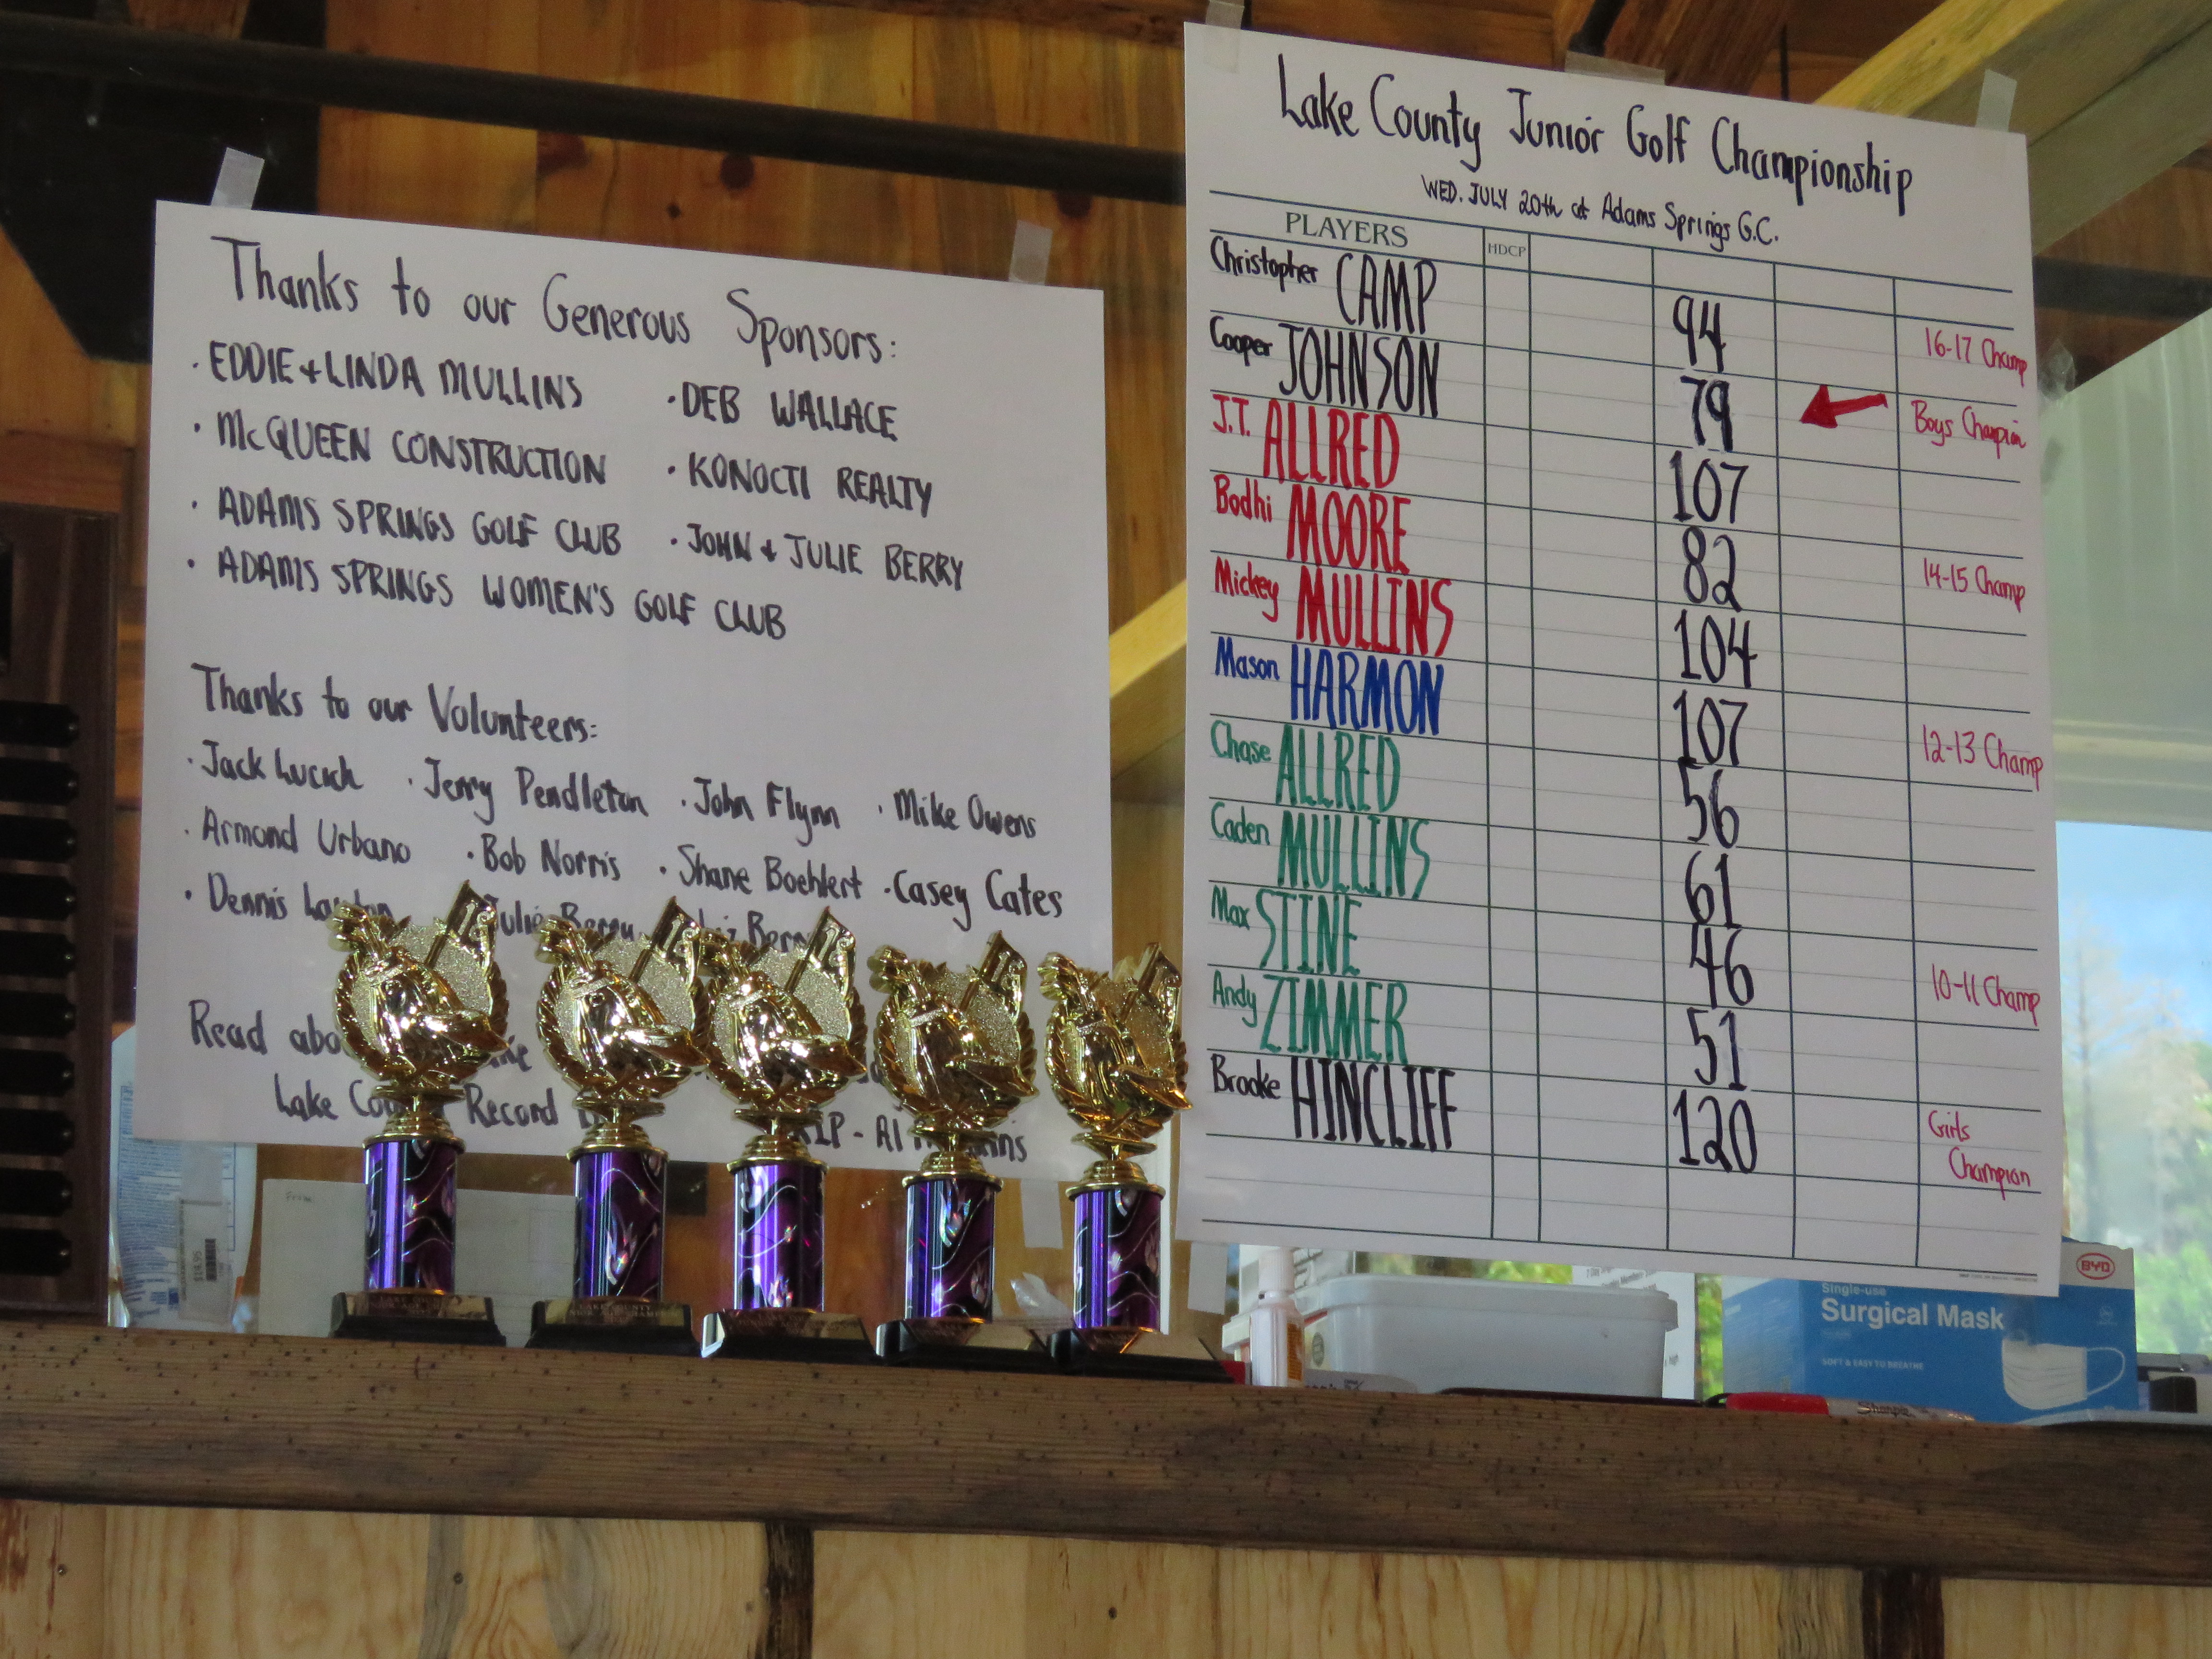 Thanks to our Generous Sponsors:
· EDDIE + LINDA MULLINS · DEB WALLACE
· McQUEEN CONSTRUCTION · KONOCTI REALTY
· ADAMS SPRINGS GOLF CLUB · JOHN + JULIE BERRY
· ADAMS SPRINGS WOMEN'S GOLF CLUB
Thanks to our Volunteers:
· Jack · Jerry Pendleton · John Flynn · Mike Owens
· Armond Urbano · Bob Norris · Shane Boehlert · Casey Cates
· Dennis Julie Berry
Read
Lake Record
Lake County Junior Golf Championship
WED. JULY 20th at Adams Springs G.C.
PLAYERS HDCP
Christopher CAMP 94 16-17 Champ
Cooper JOHNSON 79 Boys Champion
J.T. ALLRED 107
Bodhi MOORE 82 14-15 Champ
Mickey MULLINS 104
Mason HARMON 107 12-13 Champ
Chase ALLRED 56
Caden MULLINS 61
Max STINE 46 10-11 Champ
Andy ZIMMER 51
Brooke HINCLIFF 120 Girls Champion
BYD
Single-use
Surgical Mask
SOFT & EASY TO BREATHE
Sharpie
From
$16.95
LAKE COUNTY